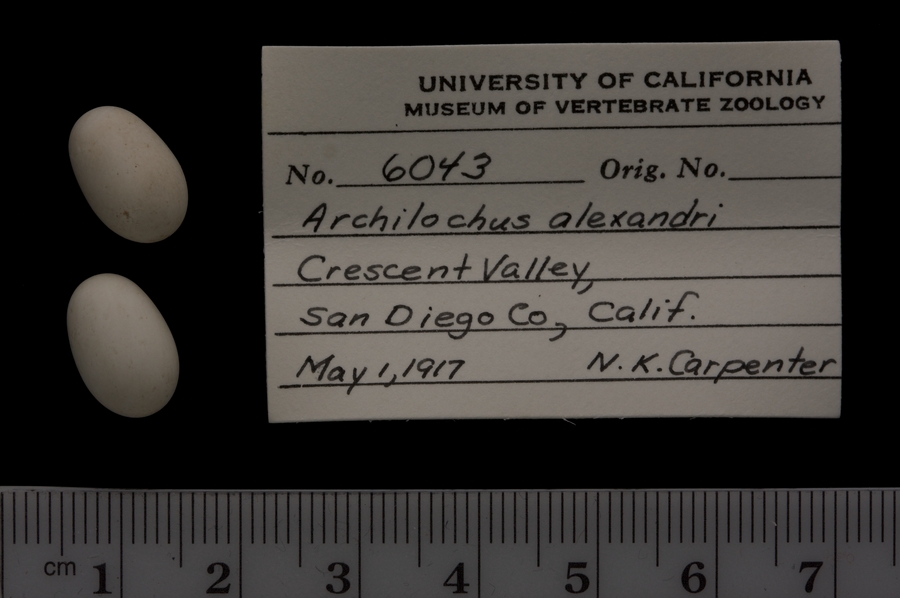 UNIVERSITY OF CALIFORNIA
MUSEUM OF VERTEBRATE ZOOLOGY
No. 6043 Orig. No.
Archilochus alexandri
Crescent Valley,
San Diego Co., Calif.
May 1, 1917 N.K. Carpenter
cm 1 2 3 4 5 6 7